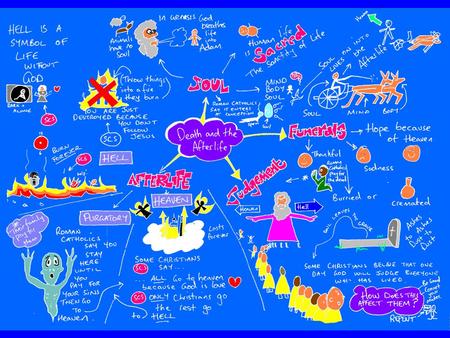 HELL IS A
SYMBOL OF
LIFE
WITHOUT
GOD
Animals
have no
Soul
IN GENESIS God
breathes
life
into
Adam
Human life
is
Sacred
The Sanctity of Life
SOUL
LIVES ON
AN INTO
THE
Afterlife
SOUL
MIND
BODY
Heaven
(Throw things
into a fire
they burn)
YOU ARE JUST
DESTROYED BECAUSE
YOU DON'T
FOLLOW
JESUS
SCS
SOUL
ROMAN CATHOLICS
SAY IT ENTERS
AT
CONCEPTION
MIND
BODY
SOUL
Death and the
Afterlife
FUNERALS
Hope because
of Heaven
Thankful
Sadness
Some
Catholics
Pray for
the dead
Buried or
Cremated
SCS
BURN
FOREVER
SCS
HELL
AFTERLIFE
HEAVEN
Lasts
forever
Judgement
HEAVEN
Hell
PURGATORY
ROMAN
CATHOLICS
SAY YOU
STAY
HERE
UNTIL
YOU
PAY FOR
YOUR SINS
THEN GO
TO
HEAVEN.
SOME CHRISTIANS
SAY...
SCS
ALL Go to heaven
because GOD is love
SCS ONLY Christians go
the rest go
to HELL
SOUL LEAVES THE GRAVE
Ashes
to
Ashes
dust
to
dust
SOME CHRISTIANS BELIEVE THAT ONE
DAY GOD WILL JUDGE EVERYONE
WHO HAS LIVED
HOW DOES THIS
AFFECT THEM?
REPENT